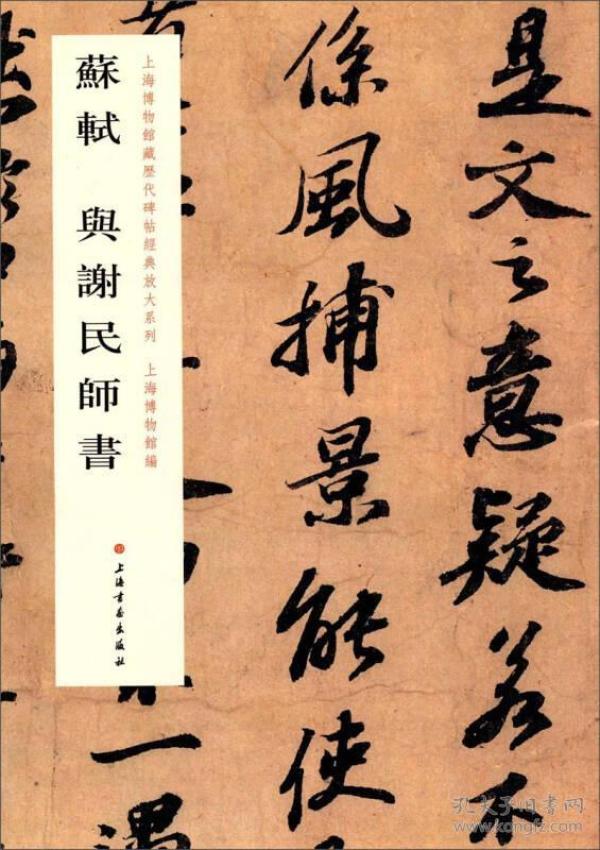 是文之意疑若不
係風捕景能使
一遇
上海博物館藏歷代碑帖經典放大系列 上海博物館編
蘇軾 與謝民師書
上海書画出版社
孔夫子旧書网
www.kongfz.com